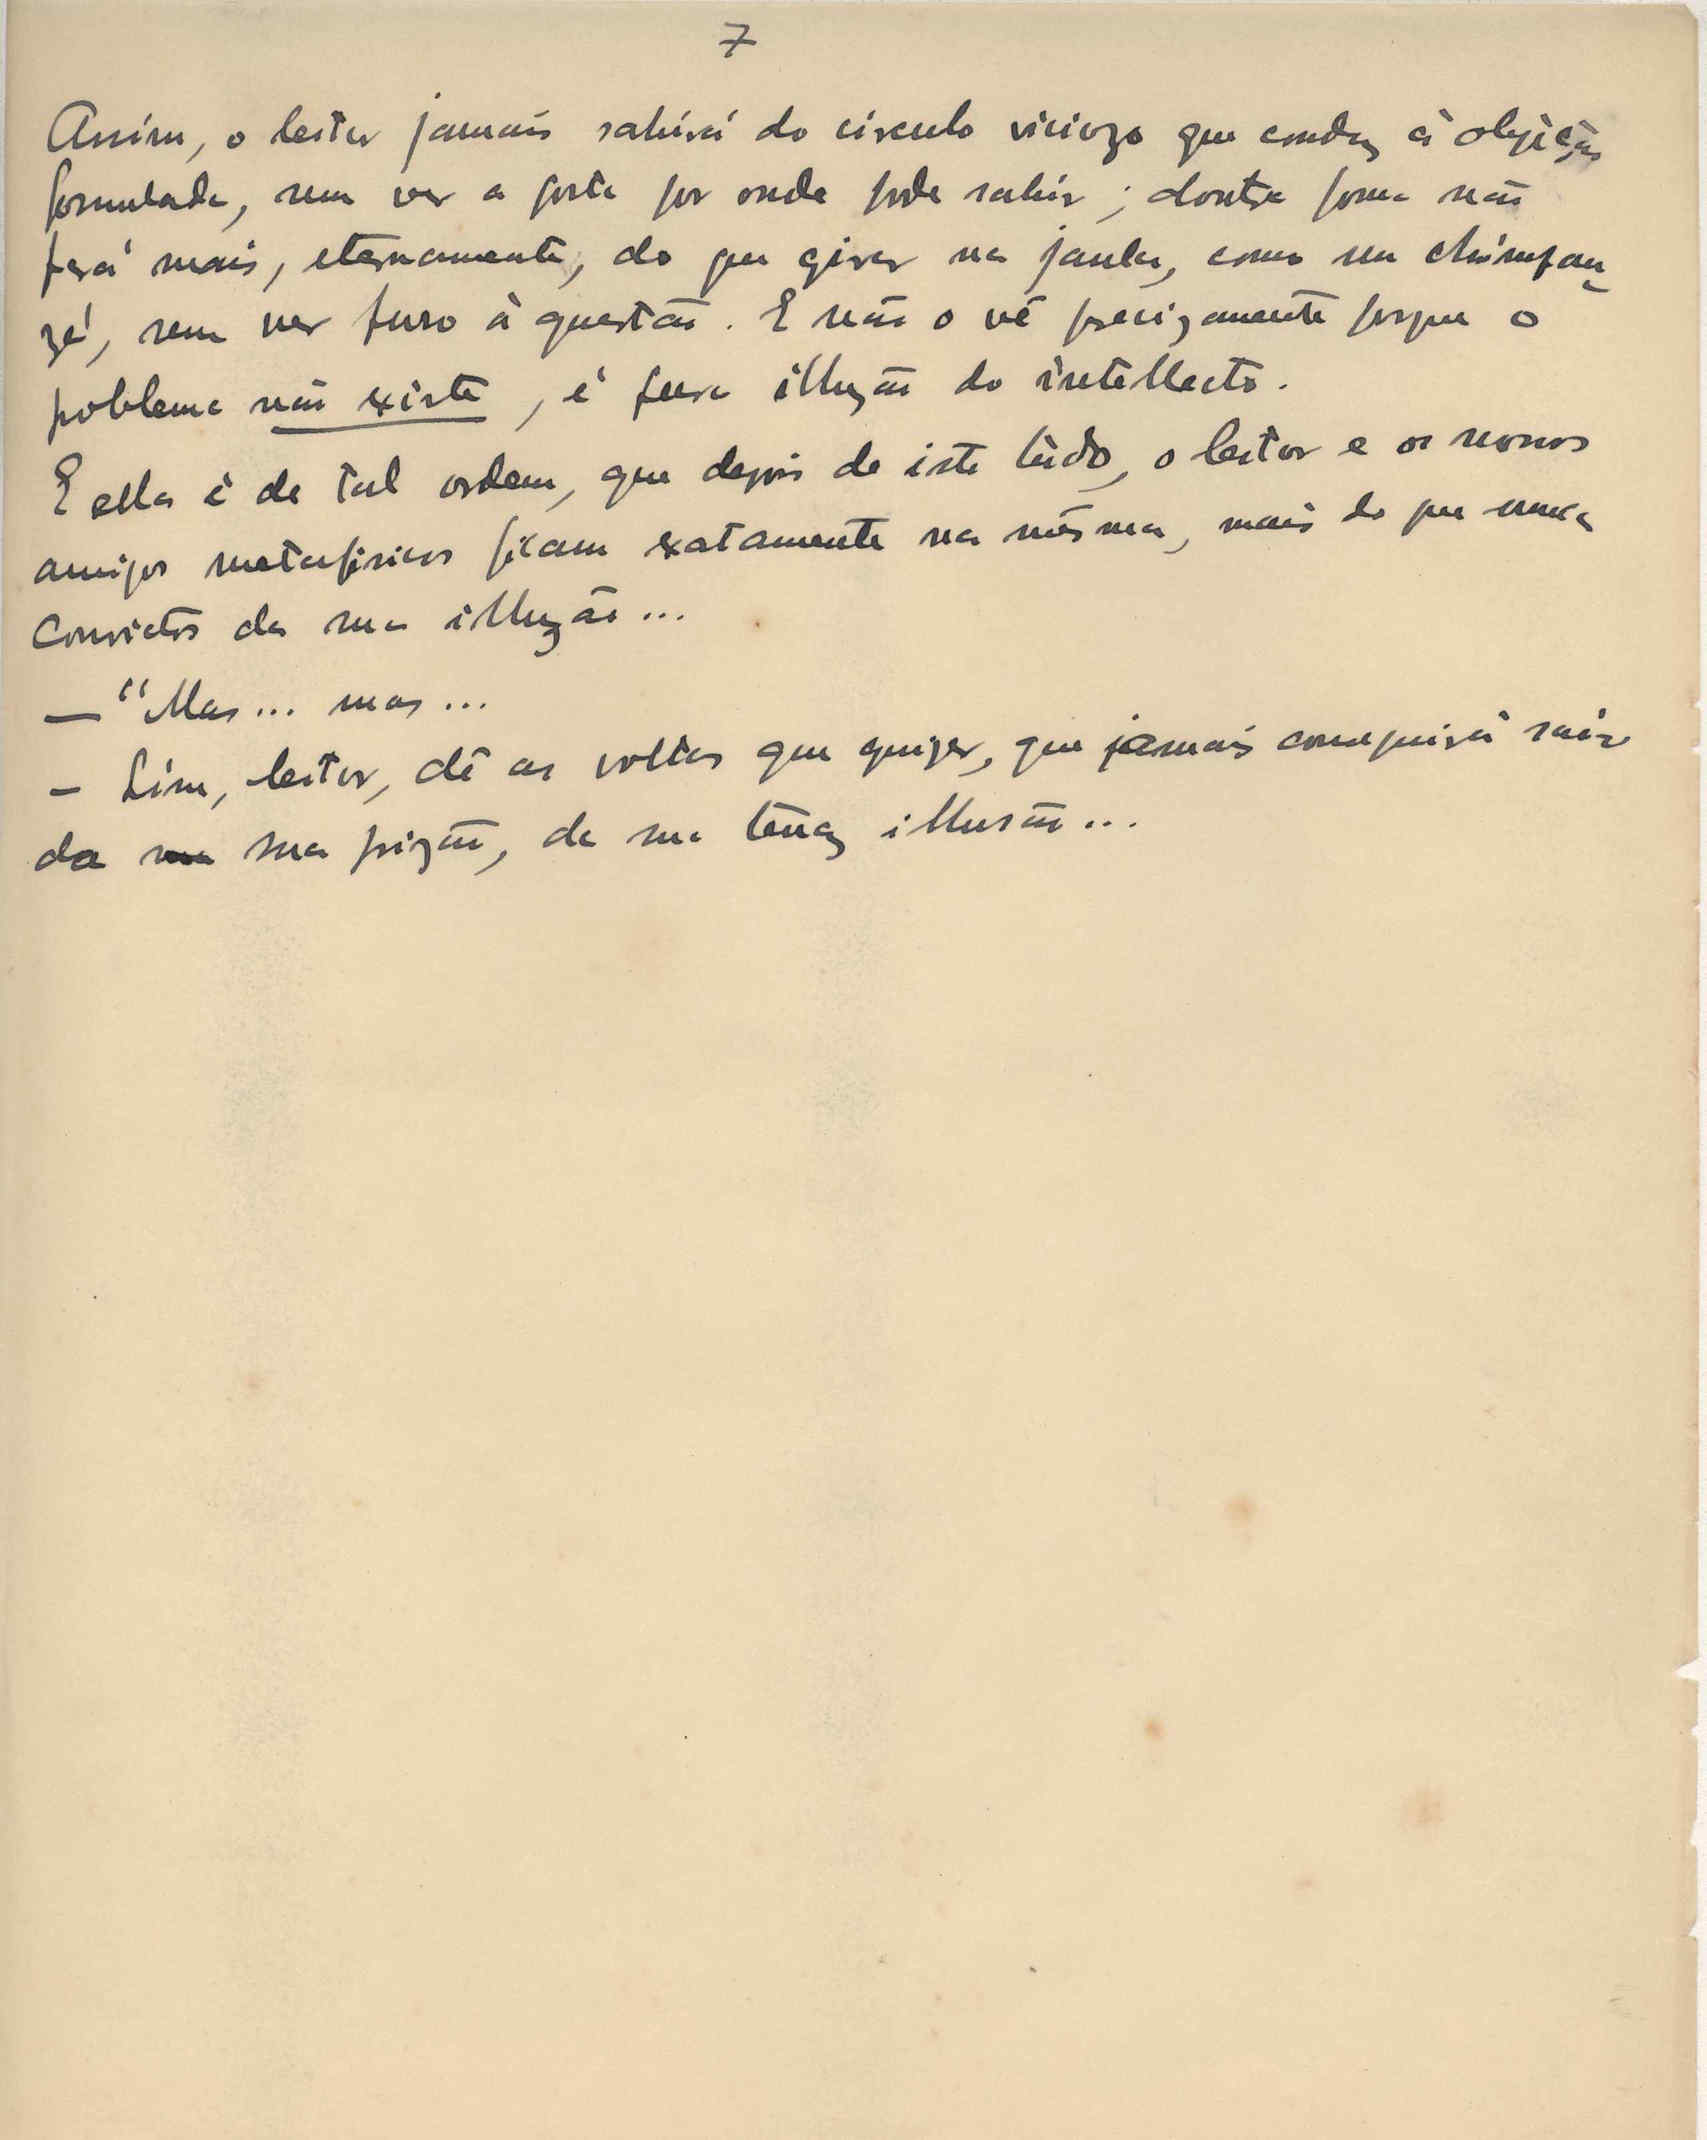 7
Assim, o leitor jamais sahirá do circulo viciozo que conduz à objéção
formulada, sem ver a porta por onde pode sahir; doutra forma não
fará mais, eternamente, do que girar na jaula, como um chimpan-
zé, sem ver furo à questão. E não o vê precizamente porque o
poblema não existe, é pura illuzão do intellecto.
E ella é de tal ordem, que depois de isto lido, o leitor e os nossos
amigos metafisicos ficam exatamente na mésma, mais do que nunca
convictos da sua illuzão...
— "Mas... mas...
– Sim, leitor, dê as voltas que quizer, que jamais conseguirá sair
da sua prizão, da sua tenaz illusão...